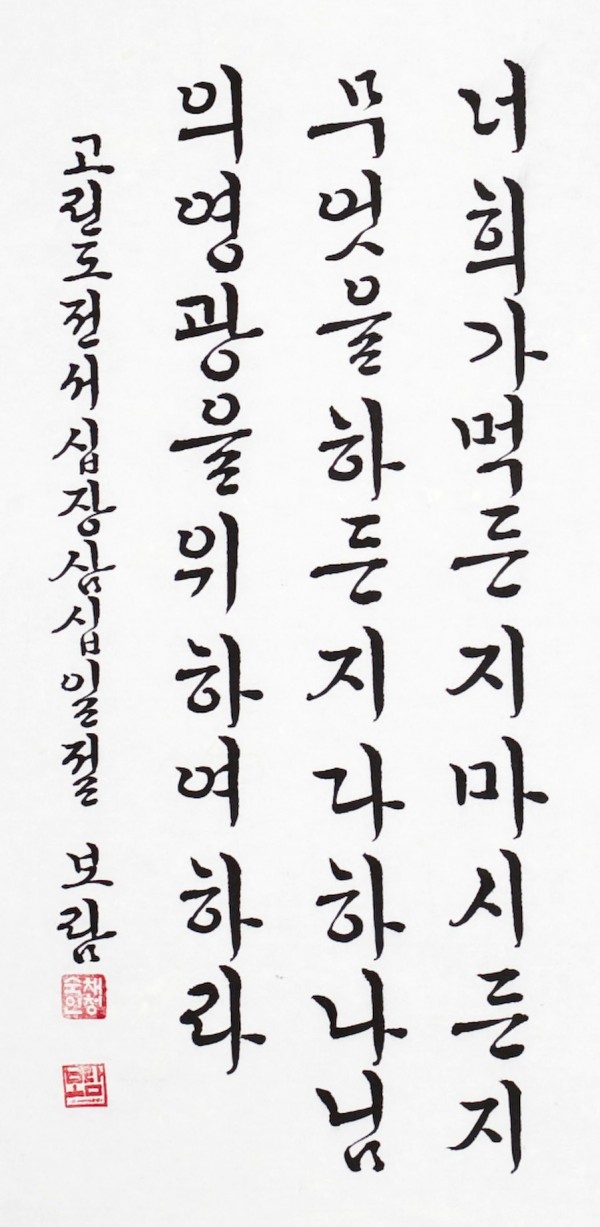 너희가먹든지마시든지
무엇을하든지다하나님
의영광을위하여하라
고린도전서십장삼십일절 보람
보람